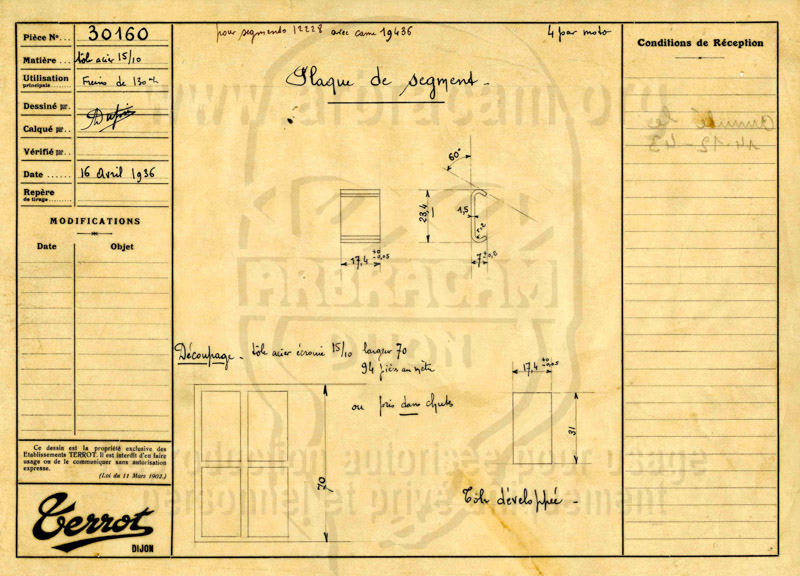 Pièce N°... 30160
Matière... tôle acier 15/10
Utilisation
principale
Freins de 130
Dessiné par.
Calqué par..
Vérifié par..
Date ...... 16 Avril 1936
Repère
de tirage
MODIFICATIONS
Date Objet
Ce dessin est la propriété exclusive des
Etablissements TERROT. Il est interdit d'en faire
usage ou de le communiquer sans autorisation
expresse.
(Loi du 11 Mars 1902.)
Terrot
DIJON
pour segments 12228 avec came 19436
4 par moto
Plaque de segment
www.arbracam.org
60°
23,4
1,5
r.2
17,4 +0 -0,05
7
ARBRACAM
DIJON
Découpage - tôle acier écrouie 15/10 largeur 70
94 pièces au mètre
ou pris dans chutes
70
17,4 +0 -0,05
31
Tôle développée -
reproduction autorisée pour usage
personnel et privé uniquement
Conditions de Réception
Annulé le
14-12-43